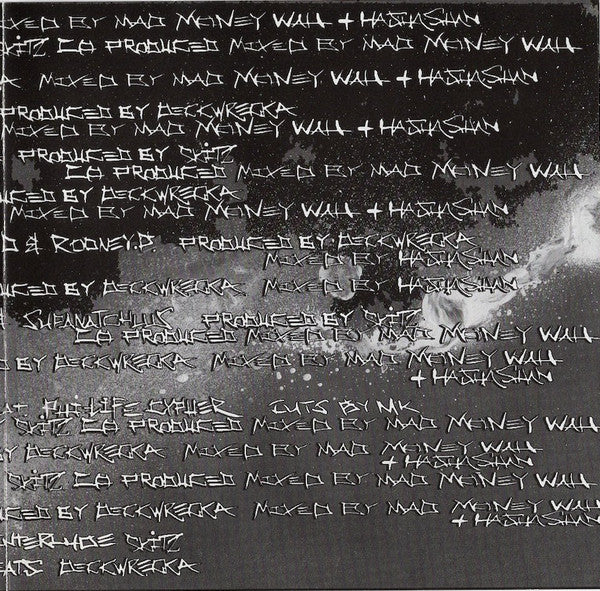 MIXED BY MAD MONEY WAH + HAJJHASHAN
SKITZ CO PRODUCED MIXED BY MAD MONEY WAH
MIXED BY MAD MONEY WAH + HAJJHASHAN
PRODUCED BY DECKWRECKA
MIXED BY MAD MONEY WAH + HAJJHASHAN
PRODUCED BY SKITZ
CO PRODUCED MIXED BY MAD MONEY WAH
UCED BY DECKWRECKA
MIXED BY MAD MONEY WAH + HAJJHASHAN
& RODNEY.P. PRODUCED BY DECKWRECKA
MIXED BY HAJJHASHAN
UCED BY DECKWRECKA MIXED BY HAJJHASHAN
PRODUCED BY SKITZ
CO PRODUCED MIXED BY MAD MONEY WAH
D BY DECKWRECKA MIXED BY MAD MONEY WAH
+ HAJJHASHAN
AT. PHI-LIFE CYPHER CUTS BY MK
SKITZ CO PRODUCED MIXED BY MAD MONEY WAH
BY DECKWRECKA MIXED BY MAD MONEY WAH
+ HAJJHASHAN
SKITZ CO PRODUCED MIXED BY MAD MONEY WAH
UCED BY DECKWRECKA MIXED BY MAD MONEY WAH
+ HAJJHASHAN
INTERLUDE SKITZ
EATS DECKWRECKA